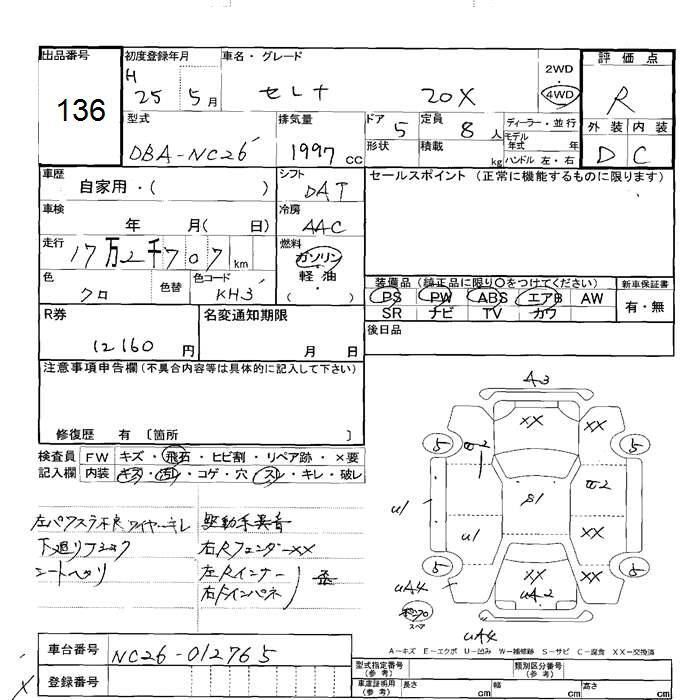 出品番号
136
初度登録年月
H 25 5 月
車名・グレード
セレナ 20X
2WD
4WD
評価点
R
外装 内装
D C
型式
DBA-NC26
排気量
1997 cc
ドア 5
形状
定員 8 人
積載 kg
ディーラー・並行
モデル年式 年
ハンドル 左・右
車歴
自家用・( )
シフト
DAT
セールスポイント (正常に機能するものに限ります)
車検
年 月( 日)
冷房
AAC
走行
17万2千707 km
燃料
ガソリン
軽油
( ・ )
色
クロ
色替
色コード
KH3
装備品 (純正品に限り○をつけてください)
PS PW ABS エアB AW
SR ナビ TV カワ
新車保証書
有・無
R券
12160 円
名変通知期限
月 日
後日品
注意事項申告欄 (不具合内容等は具体的に記入して下さい)
修復歴 有 〔箇所 〕
検査員記入欄
FW キズ・飛石・ヒビ割・リペア跡・×要
内装 キズ・汚れ・コゲ・穴・スレ・キレ・破レ
左パワスラ不良 ワイヤーキレ
下廻りフック
シートヘタリ
駆動系異音
右RフェンダーXX
左Rインナー
右Rインパネ
A3
XX
XX
5
5
S1
XX
U1
U1
5
5
XX
XX
UA2
UA4
UA4
スペア
A-キズ E-エクボ U-凹み W-補修跡 S-サビ C-腐食 XX-交換済
車台番号
NC26-012765
登録番号
型式指定番号 (参考)
類別区分番号 (参考)
車庫証明用 (参考)
長さ cm
幅 cm
高さ cm